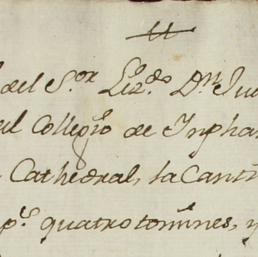 11
del S.or Liz.do D.n Jua
el Collegio de Inphan
Cathedral, la Canti
p.s quatro tomines, y